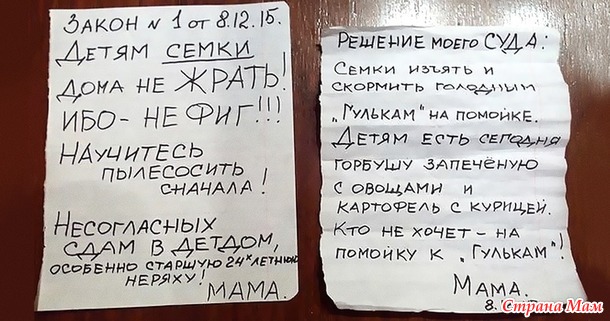 ЗАКОН N 1 ОТ 8.12.15.
ДЕТЯМ СЕМКИ
ДОМА НЕ ЖРАТЬ!
ИБО - НЕ ФИГ!!!
НАУЧИТЕСЬ
ПЫЛЕСОСИТЬ
СНАЧАЛА!
НЕСОГЛАСНЫХ
СДАМ В ДЕТДОМ,
ОСОБЕННО СТАРШУЮ 24х ЛЕТНЮЮ
НЕРЯХУ!
МАМА.
РЕШЕНИЕ МОЕГО СУДА:
СЕМКИ ИЗЪЯТЬ И
СКОРМИТЬ ГОЛОДНЫМ
„ГУЛЬКАМ" НА ПОМОЙКЕ.
ДЕТЯМ ЕСТЬ СЕГОДНЯ
ГОРБУШУ ЗАПЕЧЁНУЮ
С ОВОЩАМИ И
КАРТОФЕЛЬ С КУРИЦЕЙ.
КТО НЕ ХОЧЕТ - НА
ПОМОЙКУ К „ГУЛЬКАМ"!
МАМА.
8.
Страна Мам